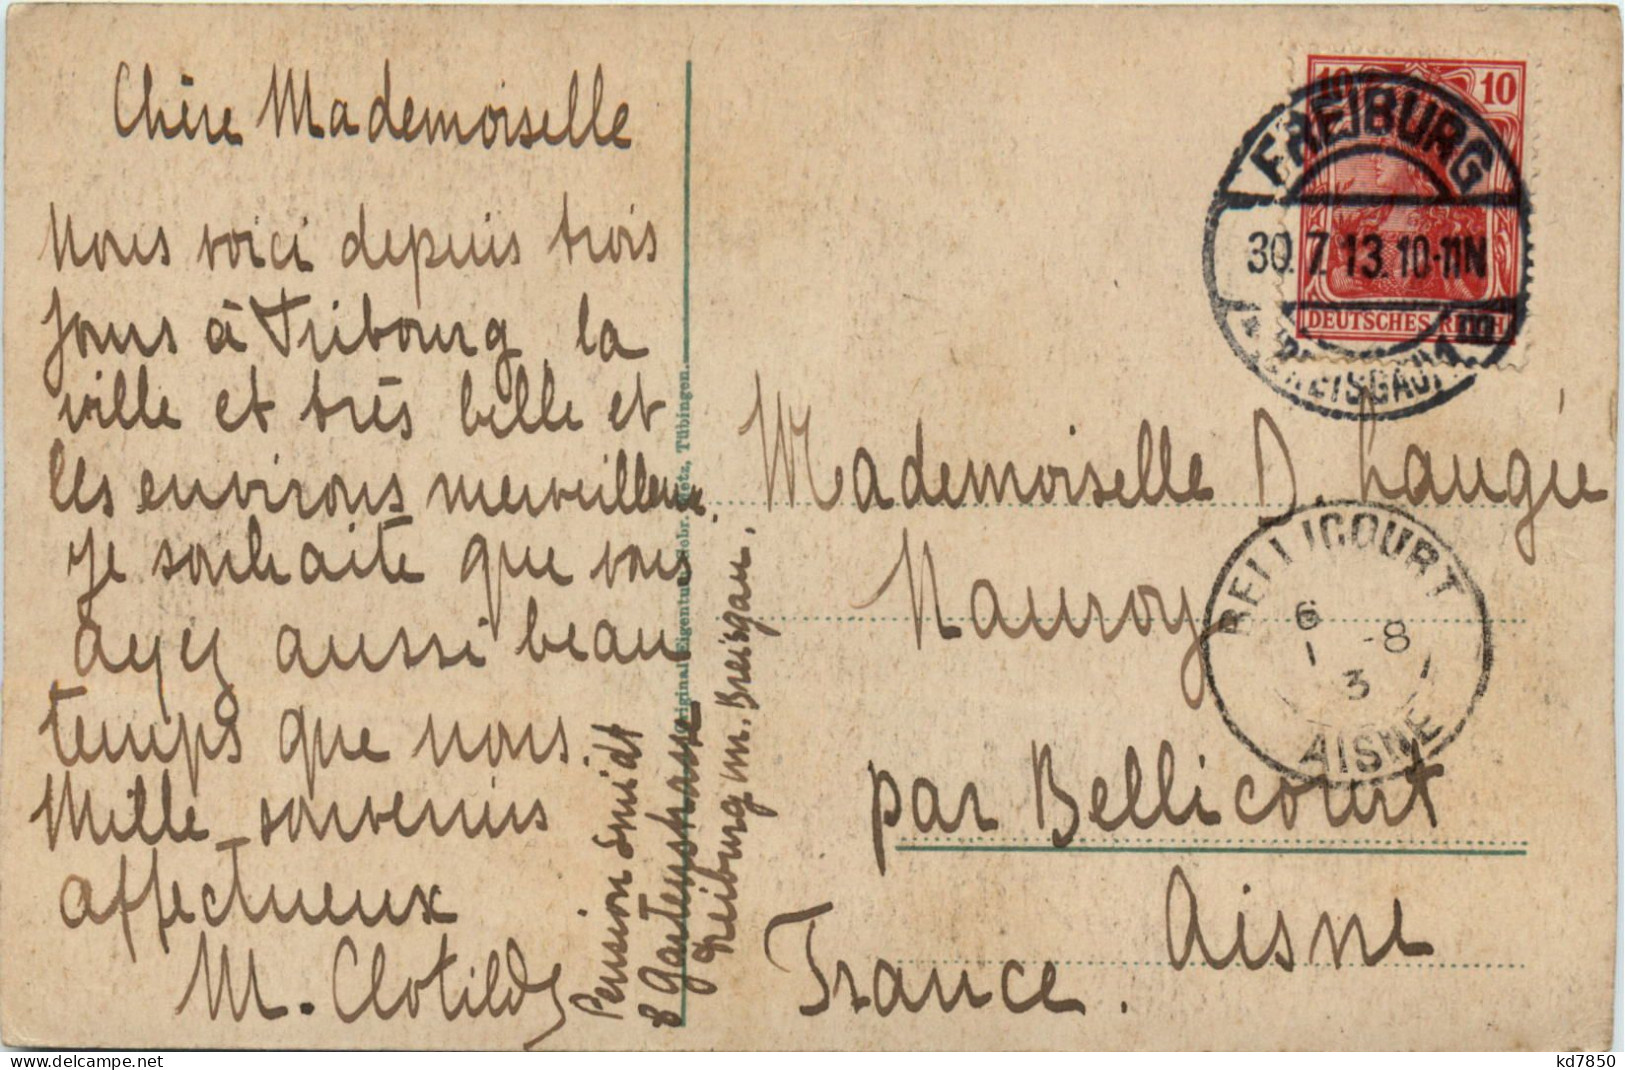 Chère Mademoiselle
Nous voici depuis trois
jours à Fribourg la
ville et très belle et
les environs merveilleux.
Je souhaite que vous
ayez aussi beau
temps que nous.
Mille souvenirs
affectueux
M. Clotilde
Pension Smidt
8 Gartenstrasse
Freiburg im. Breisgau.
Original-Eigentum Gebr. Metz, Tübingen.
10 10
DEUTSCHES REICH
FREIBURG
30.7.13.10-11N
* (BREISGAU) 1
Mademoiselle D. Laugée
Nauroy
par Bellicourt
Aisne
France.
BELLICOURT
6 -8
1 3
AISNE
www.delcampe.net
kd7850